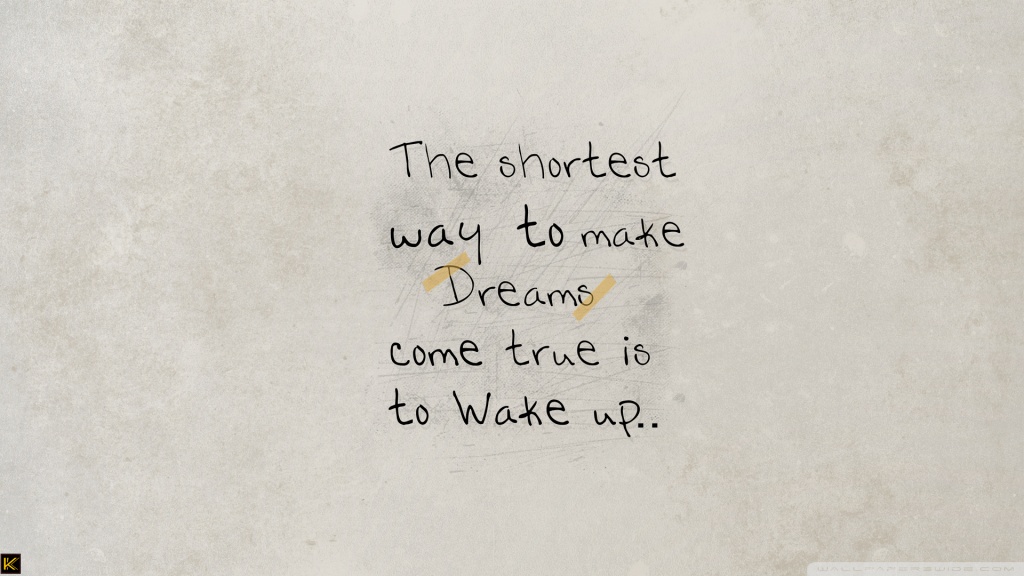 The shortest
way to make
Dreams
come true is
to Wake up..
K
WALLPAPERSWIDE.COM